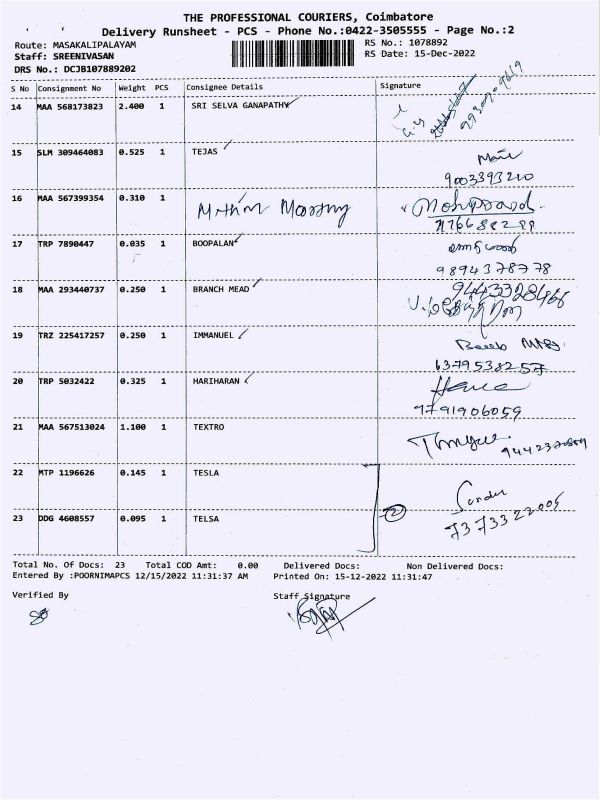 THE PROFESSIONAL COURIERS, Coimbatore
Delivery Runsheet - PCS - Phone No.:0422-3505555 - Page No.:2
Route: MASAKALIPALAYAM
RS No.: 1078892
Staff: SREENIVASAN
RS Date: 15-Dec-2022
DRS No.: DCJB107889202
S No Consignment No Weight PCS Consignee Details Signature
14 MAA 568173823 2.400 1 SRI SELVA GANAPATHY
15 SLM 309464083 0.525 1 TEJAS
9003393210
16 MAA 567399354 0.310 1
17 TRP 7890447 0.035 1 BOOPALAN
9894378778
18 MAA 293440737 0.250 1 BRANCH MEAD
9443328466
19 TRZ 225417257 0.250 1 IMMANUEL
6379538257
20 TRP 5032422 0.325 1 HARIHARAN
9791906059
21 MAA 567513024 1.100 1 TEXTRO
22 MTP 1196626 0.145 1 TESLA
Sundar
2
7373322005
23 DDG 4608557 0.095 1 TELSA
Total No. Of Docs: 23 Total COD Amt: 0.00 Delivered Docs: Non Delivered Docs:
Entered By :POORNIMAPCS 12/15/2022 11:31:37 AM Printed On: 15-12-2022 11:31:47
Verified By Staff Signature